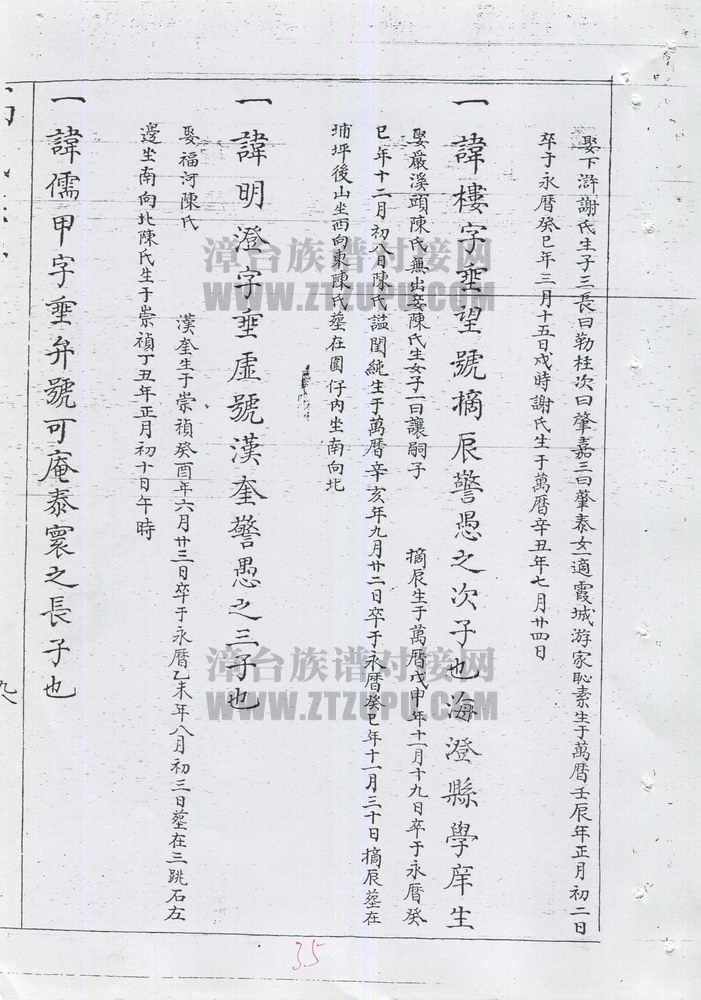 娶下滸謝氏生子三長曰勒桂次曰肇嘉三曰肇泰女一適霞城游家恥素生于萬曆壬辰年正月初二日
卒于永曆癸巳年三月十五日戌時謝氏生于萬曆辛丑年七月廿四日
一諱樓字垂望號摘辰警愚之次子也海澄縣學庠生
娶嚴溪頭陳氏無出妾陳氏生女子一曰讓嗣子 摘辰生于萬曆戊申年十一月十九日卒于永曆癸
巳年十二月初八日陳氏謚閨純生于萬曆辛亥年九月廿二日卒于永曆癸巳年十一月三十日摘辰塟在
埔坪後山坐西向東陳氏塟在園仔內坐南向北
一諱明澄字垂虛號漢奎警愚之三子也
娶福河陳氏 漢奎生于崇禎癸酉年六月廿三日卒于永曆乙未年八月初三日塟在三跳石左
邊坐南向北陳氏生于崇禎丁丑年正月初十日午時
一諱儒甲字垂弁號可庵泰寰之長子也
九
35
漳台族谱对接网
WWW.ZTZUPU.COM
漳台族谱对接网
WWW.ZTZUPU.COM